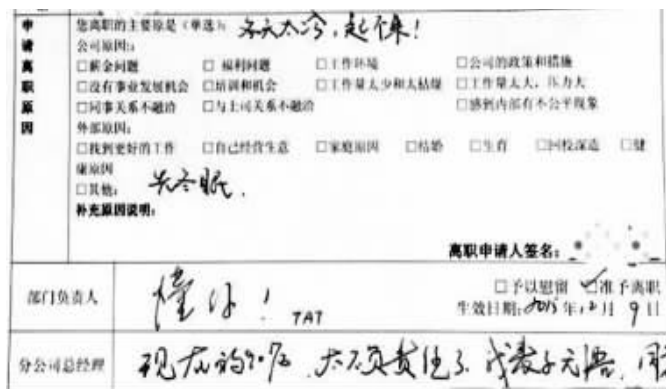 申请离职原因
您离职的主要原是（单选）：冬天太冷，起不来！
公司原因：
□薪金问题 □福利问题 □工作环境 □公司的政策和措施
□没有事业发展机会 □培训和机会 □工作量太少和太枯燥 □工作量太大，压力大
□同事关系不融洽 □与上司关系不融洽 □感到内部有不公平现象
外部原因：
□找到更好的工作 □自己经营生意 □家庭原因 □结婚 □生育 □回校深造 □健
康原因
□其他：冬眠.
补充原因说明：
离职申请人签名：
部门负责人
□予以慰留 ☑准予离职
生效日期：2015年12月9日
TAT
分公司总经理
现在的90后 太不负责任了